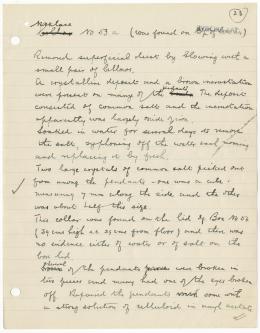 23
necklace
No 53a (was found on top of
Removed superficial dust by blowing with a
small pair of bellows.
A crystalline deposit and a brown incrustation
were present on many of the pendants. The deposit
consisted of common salt and the incrustation
apparently was largely
Soaked in water for several days to remove
the salt, syphoning off the water each morning
and replacing it by fresh.
Two large crystals of common salt picked out
from among the pendants - one was a cube
measuring 7 mm along the side and the other
was about half this size.
This collar was found on the lid of Box No
(34 cms high = 34 cms from floor) and there was
no evidence either of water or of salt on the
box lid.
Several of the pendants were broken in
two pieces and many had one of the eyes broken
off. Repaired the pendants with
a strong solution of celluloid in amyl acetate